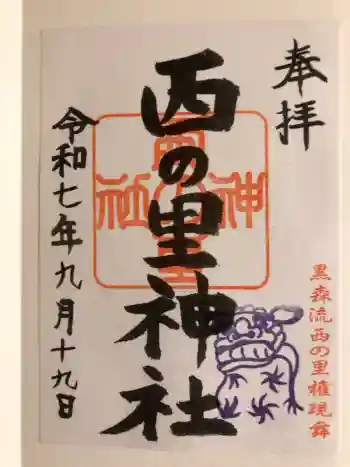 奉拝
西の里神社
令和七年九月十九日
黒森流西の里権現舞